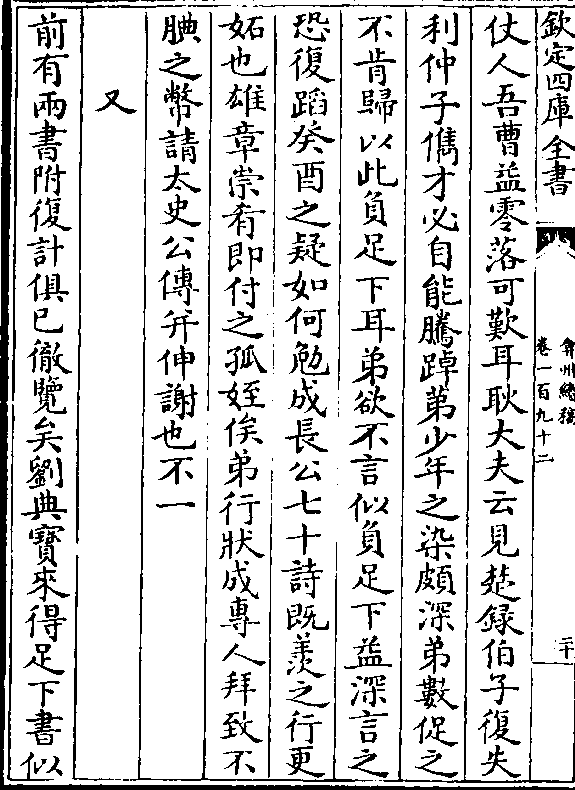 欽定四庫全書
弇州續稿
卷一百九十二
二十
仗人吾曹益零落可歎耳耿大夫云見楚録伯子復失
利仲子儁才必自能騰踔苐少年之染頗深弟數促之
不肯歸以此負足下耳弟欲不言似負足下益深言之
恐復蹈癸酉之疑如何勉成長公七十詩既羨之行更
妬也雄章崇肴即付之孤姪俟弟行狀成專人拜致不
腆之幣請太史公傳并伸謝也不一
又
前有兩書附復計俱已徹覽矣劉典寶來得足下書似